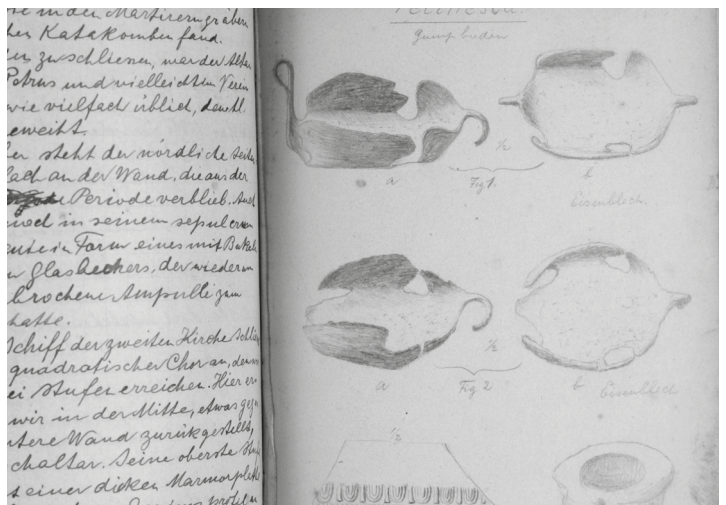 se in den Märtirerngräben
hen Katakomben fand.
zu schliesen, war der Altar
Petrus und vielleicht im Verein
wie vielfach üblich, dem hl.
eweiht.
steht der nördliche Seiten
an der Wand, die aus der
Periode verblieb. Auch
noch in seinem sepulcrum
in Form eines mit Buckeln
Glasbechers, der wiederum
brochene Ampulle zum
hatte.
Schiff der zweiten Kirche schlies
quadratischer Chor an, den
ei Stufen erreichen. Hier er
wir in der Mitte, etwas geg
ntere Wand zurükgestellt,
chaltar. Seine oberste Stu
einer dicken Marmorplatte
½
a
Fig 1.
b
Eisenblech.
½
a
Fig 2
b
Eisenblech
½